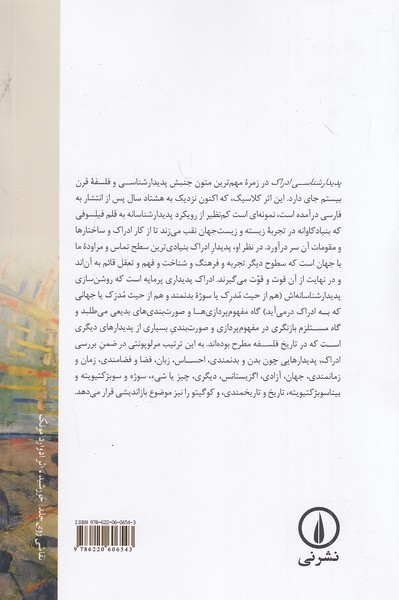 پدیدارشناسـی ادراک در زمرهٔ مهم‌ترین متون جنبش پدیدارشناسـی و فلسفهٔ قرن
بیستم جای دارد. این اثر کلاسیک، که اکنون نزدیک به هشتاد سال پس از انتشار به
فارسی درآمده است، نمونه‌ای است کم‌نظیر از رویکرد پدیدارشناسانه به قلم فیلسوفی
که بنیادکاوانه در تجربهٔ زیسته و زیست‌جهان نقب می‌زند تا از کار ادراک و ساختارها
و مقومات آن سر درآورد. در نظر او، پدیدار ادراک بنیادی‌ترین سطح تماس و مراودهٔ ما
با جهان است که سطوح دیگر تجربه و فرهنگ و شناخت و فهم و تعقل قائم به آن‌اند
و در نهایت از آن قوت و قوّت می‌گیرند. ادراک پدیداری پرمایه است که روشن‌سازی
پدیدارشناسانه‌اش (هم از حیث مُدرِک یا سوژهٔ بدنمند و هم از حیث مُدرَک یا جهانی
که به ادراک درمی‌آید) گاه مفهوم‌پردازی‌ها و صورت‌بندی‌های بدیعی می‌طلبد و
گاه مستلزم بازنگری در مفهوم‌پردازی و صورت‌بندیِ بسیاری از پدیدارهای دیگری
است که در تاریخ فلسفه مطرح بوده‌اند. به این ترتیب مرلوپونتی در ضمن بررسی
ادراک، پدیدارهایی چون بدن و بدنمندی، احساس، زبان، فضا و فضامندی، زمان و
زمانمندی، جهان، آزادی، اگزیستانس، دیگری، چیز یا شیء، سوژه و سوبژکتیویته و
بیناسوبژکتیویته، تاریخ و تاریخمندی، و کوگیتو را نیز موضوع بازاندیشی قرار می‌دهد.
نقاشی روی جلد: خورشید، اثر ادوارد مونک
ISBN 978-622-06-0654-3
9 786220 606543
نشرنی